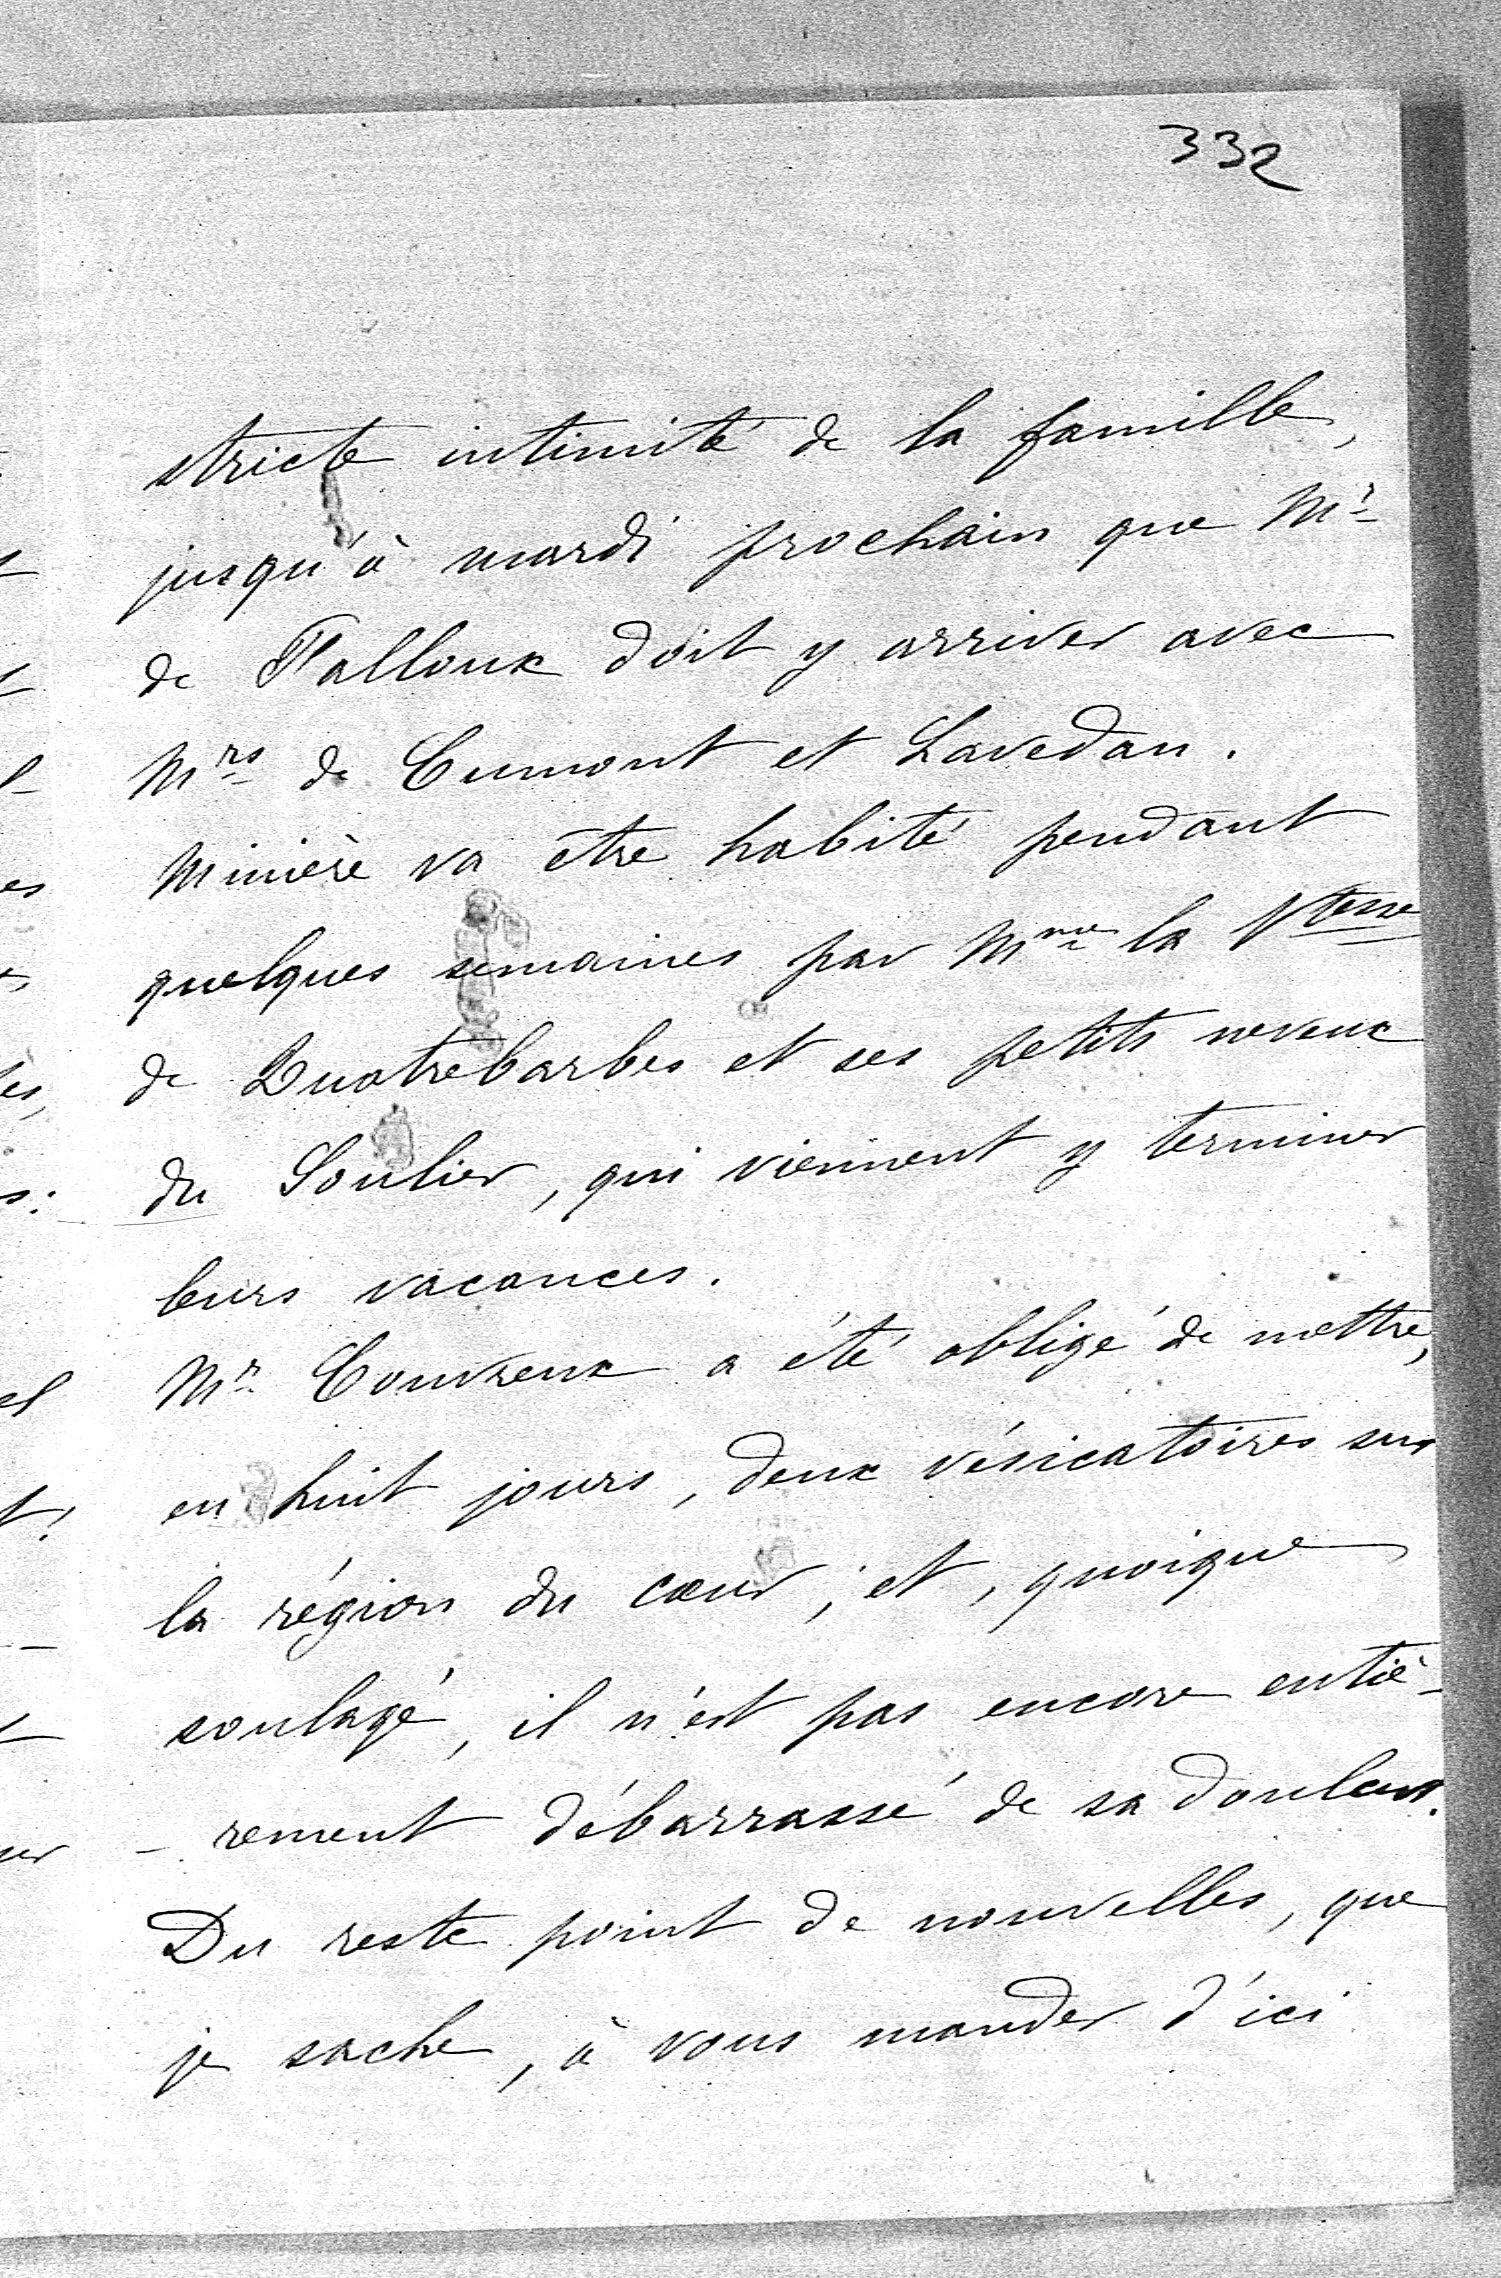 332
stricte intimité de la famille,
jusqu'à mardi prochain que Mr
de Falloux doit y arriver avec
Mrs de Cumont et Lavedan.
Minière va être habité pendant
quelques semaines par Mme la Vtesse
de Quatrebarbes et ses petits neveux
du Soulier, qui viennent y terminer
leurs vacances.
Mr Couvreux a été obligé de mettre,
en huit jours, deux vésicatoires sur
la région du cœur; et, quoique
soulagé, il n'est pas encore entiè-
-rement débarrassé de sa douleur.
Du reste point de nouvelles, que
je sache, à vous mander d'ici